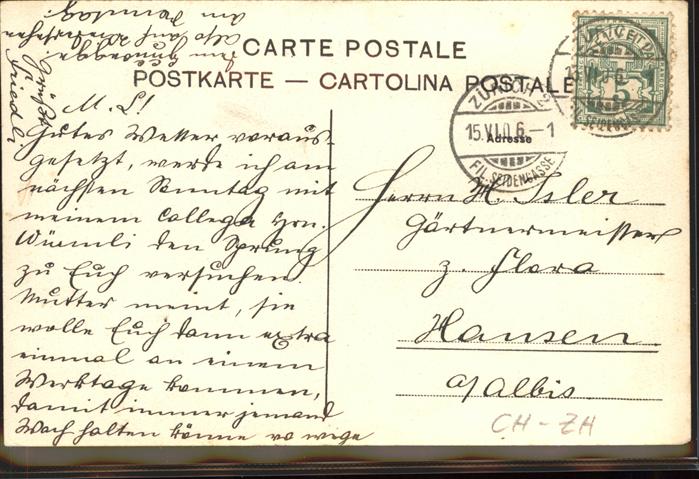 CARTE POSTALE
POSTKARTE — CARTOLINA POSTALE
Adresse
ZÜRICH
15.VI.06.–1
FIL. SEIDENGASSE
5
M. L!
Gutes Wetter voraus-
gesetzt, werde ich am
nächsten Sonntag mit
meinem Collega Hrn.
Würmli den Sprung
zu Euch versuchen.
Mutter meint, sie
wolle Euch dann extra
einmal an einem
Werktage kommen,
damit immer jemand
Wach halten könne
also auf Wiedersehen
am Sonntag.
Grüsst
Friedli
Herrn H. Isler
Gärtnermeister
z. Flora
Hausen
a/Albis.
CH - ZH